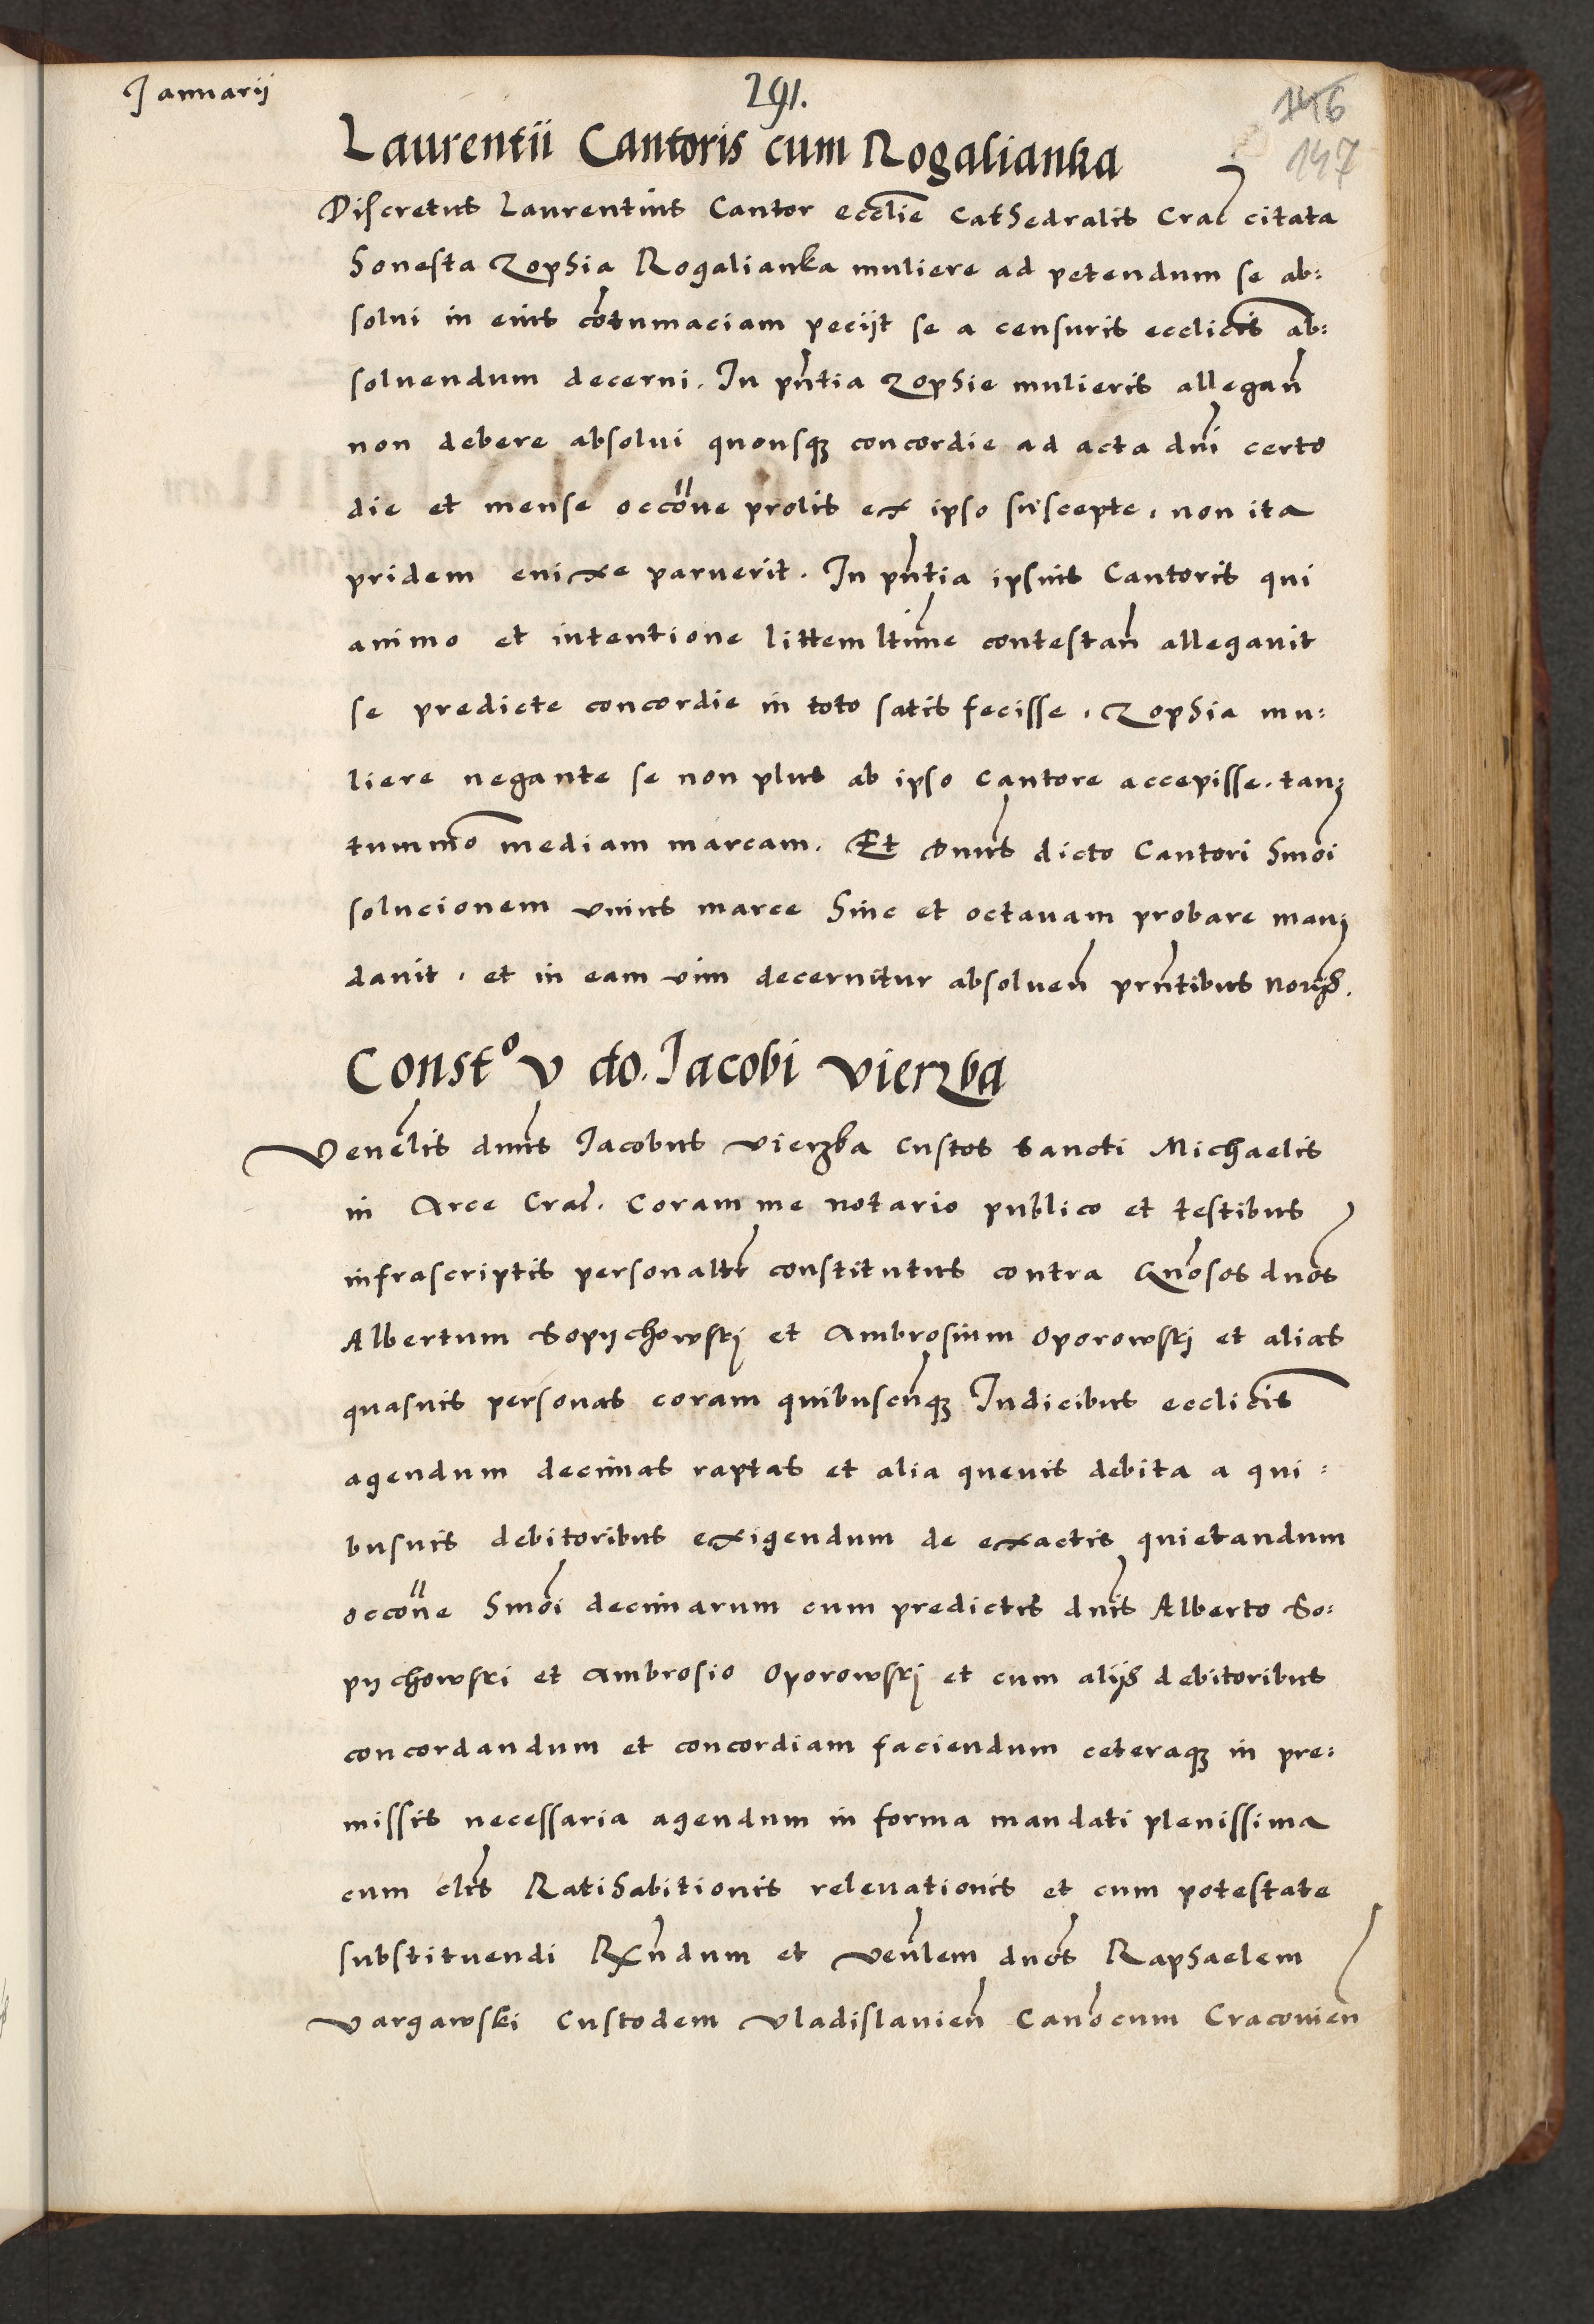 Januarii
291.
146
147
Laurentii Cantoris cum Rogalianka
Discretus Laurentius Cantor ecclie Cathedralis Crac citata
honesta Zophia Rogalianka muliere ad petendum se ab:
solui in eius cotumaciam pecijt se a censuris eccliciis ab:
soluendum decerni. In pntia Zophie mulieris allegan
non debere absolui quousq concordie ad acta dni certo
die et mense occone prolis ex ipso suscepte, non ita
pridem enixe paruerit. In pntia ipsius Cantoris qui
animo et intentione littem ltime contestan allegauit
se predicte concordie in toto satis fecisse, Zophia mu:
liere negante se non plus ab ipso Cantore accepisse. tan:
tummo mediam marcam. Et Dnus dicto Cantori hmoi
solucionem vnius marce hinc et octauam probare man:
dauit, et in eam vim decernitur absoluen prntibus
Const° v do. Jacobi vierzba
Venelis dnus Jacobus vierzba Custos Sancti Michaelis
in Arce Crac. Coram me notario publico et testibus
infrascriptis personaltr constitutus contra Gnosos dnos
Albertum Sopychowskj et Ambrosium Oporowskj et alias
quasuis personas coram quibuscunq Iudicibus ecclicis
agendum decimas raptas et alia queuis debita a qui:
busuis debitoribus exigendum de exactis quietandum
occone hmoi decimarum cum predictis dnis Alberto So:
pychowski et Ambrosio Oporowskj et cum alijs debitoribus
concordandum et concordiam faciendum ceteraq in pre:
missis necessaria agendum in forma mandati plenissima
cum clis Ratihabitionis releuationis et cum potestate
substituendi Rxndum et venlem dnos Raphaelem
vargawski Custodem vladislauien Canocum Cracouien